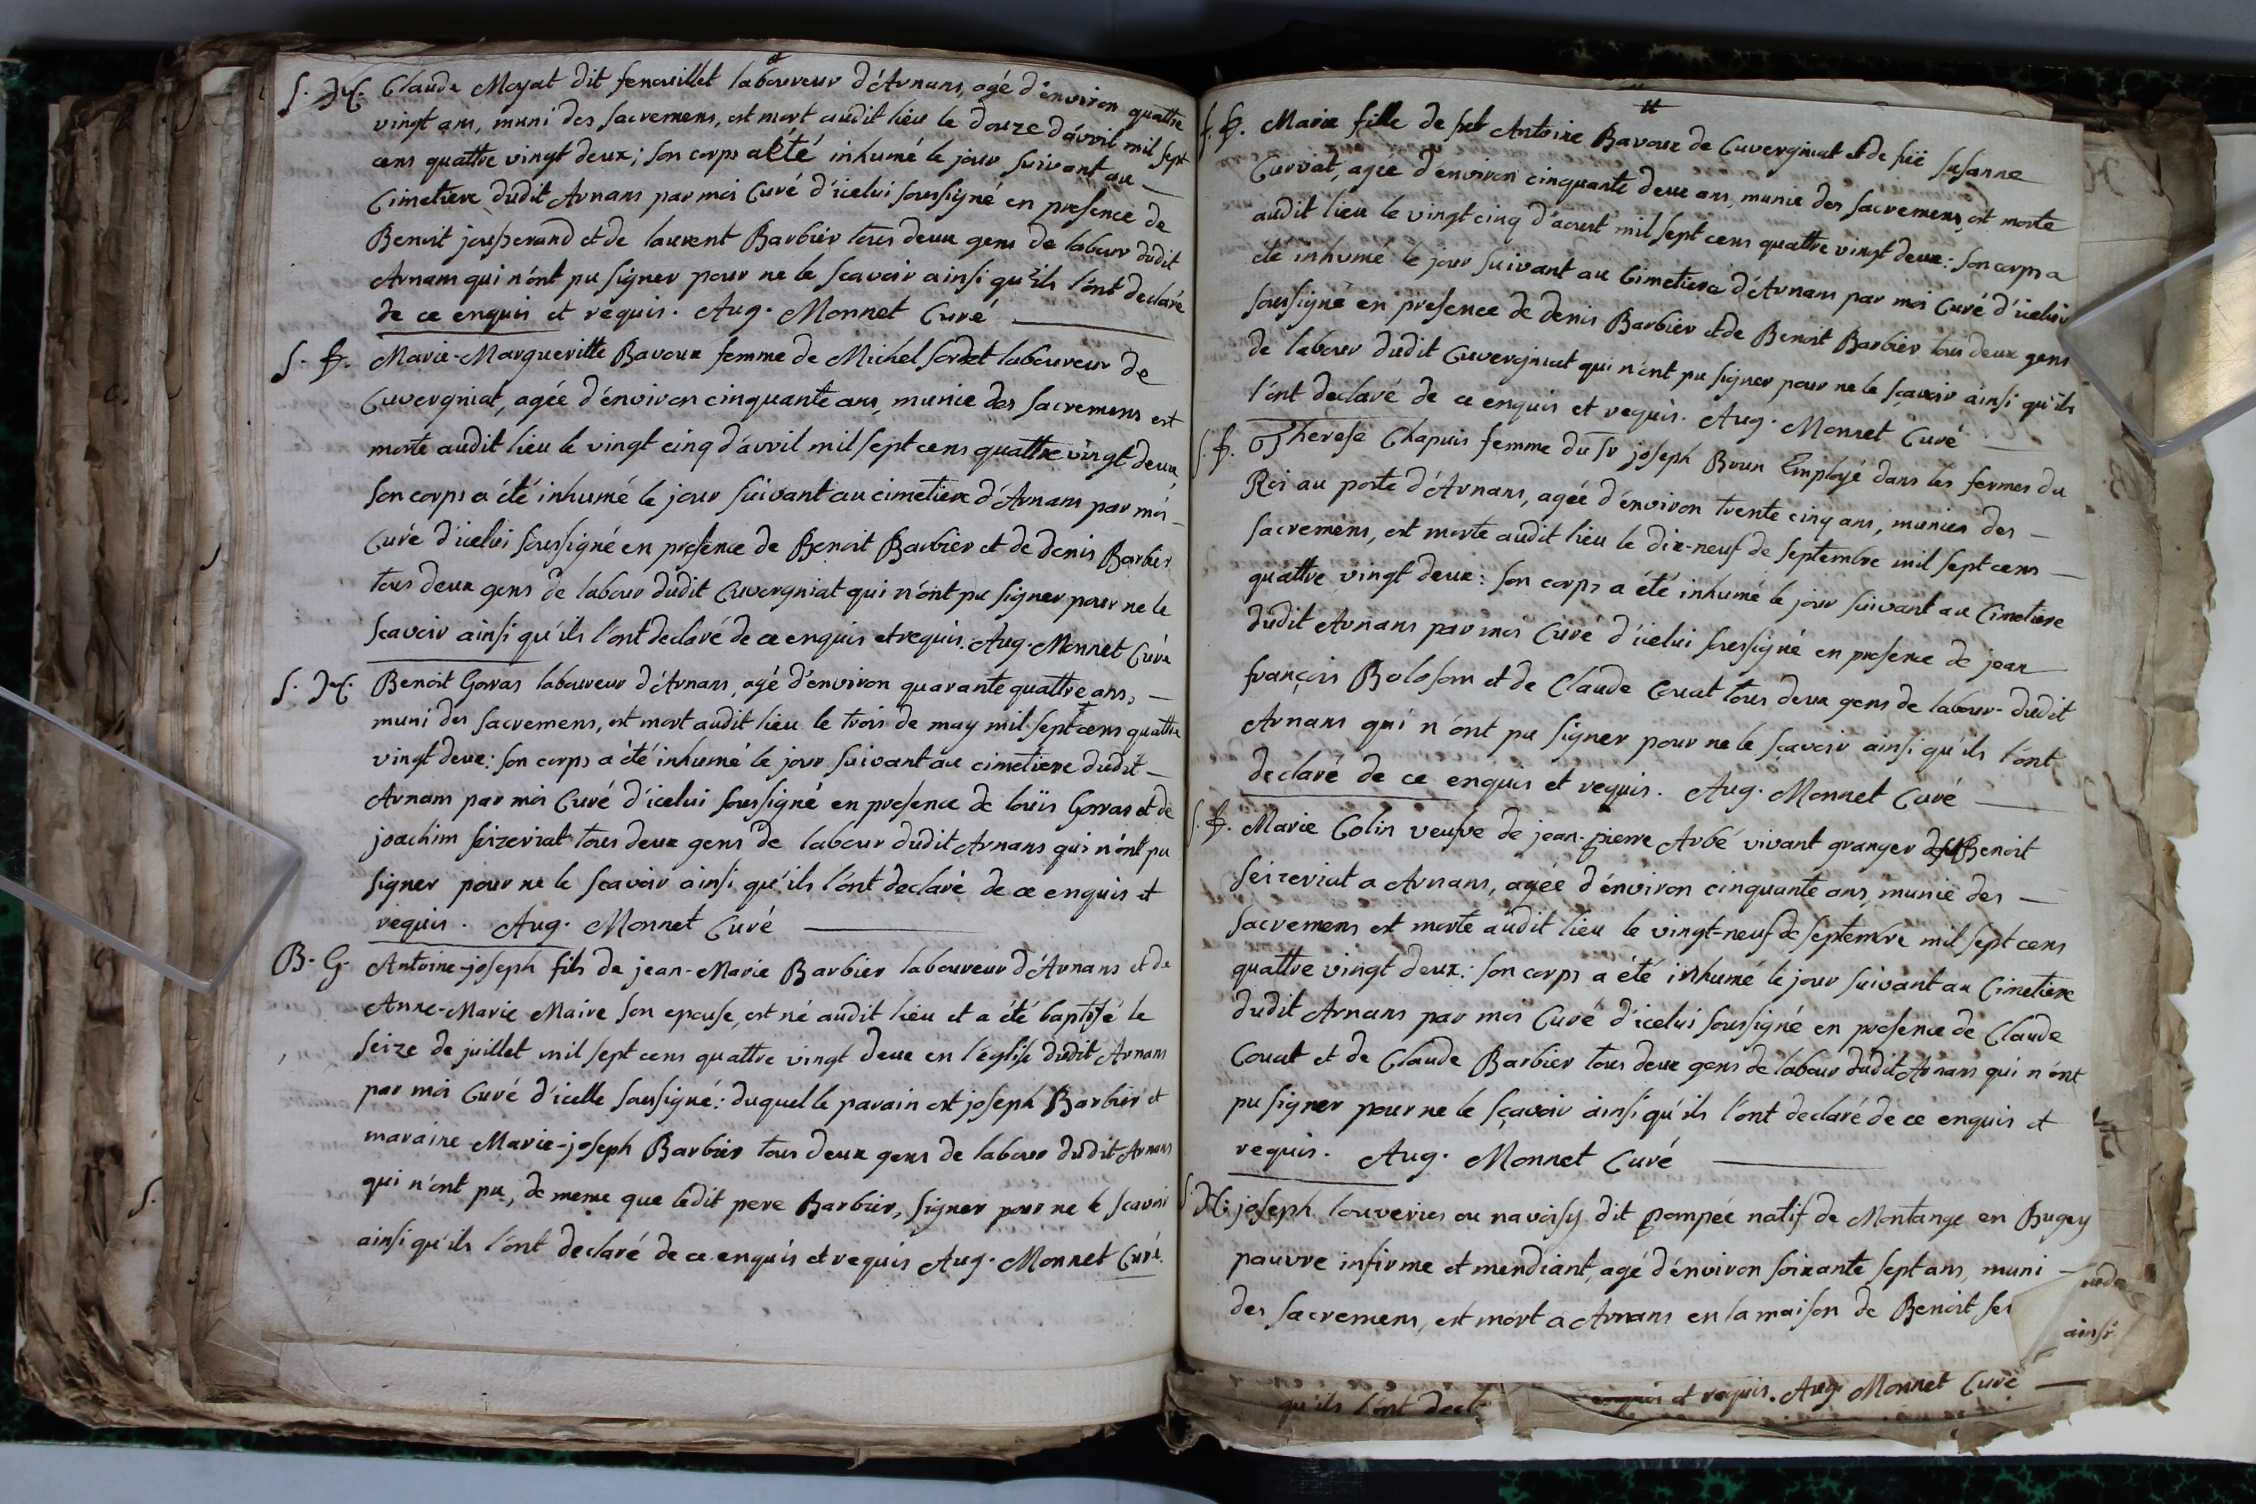 S. H. Claude Moyat dit fenouillet laboureur d'Arnans, agé d'environ quattre
vingt ans, muni des sacremens, est mort audit lieu le douze d'avril mil sept
cens quattre vingt deux; son corps a été inhumé le jour suivant au —
Cimetiere dudit Arnans par moi Curé d'icelui soussigné en presence de
Benoit jousserand et de laurent Barbier tous deux gens de labour dudit
Arnans qui n'ont pu signer pour ne le scavoir ainsi qu'ils l'ont declaré
de ce enquis et requis. Aug. Monnet Curé
S. f. Marie-Margueritte Bavoux femme de Michel sordet laboureur de
Cuvergniat, agée d'environ cinquante ans, munie des sacremens est
morte audit lieu le vingt cinq d'avril mil sept cens quattre vingt deux,
son corps a été inhumé le jour suivant au cimetiere d'Arnans par moi —
Curé d'icelui soussigné en presence de Benoit Barbier et de denis Barbier
tous deux gens de labour dudit Cuvergniat qui n'ont pu signer pour ne le
scavoir ainsi qu'ils l'ont declaré de ce enquis et requis. Aug. Monnet Curé
S. H. Benoit Gorras laboureur d'Arnans, agé d'environ quarante quattre ans, —
muni des sacremens, est mort audit lieu le trois de may mil sept cens quattre
vingt deux: son corps a été inhumé le jour suivant au cimetiere dudit —
Arnans par moi Curé d'icelui soussigné en presence de louïs Gorras et de
joachim seizeriat tous deux gens de labour dudit Arnans qui n'ont pu
signer pour ne le scavoir ainsi qu'ils l'ont declaré de ce enquis et
requis. Aug. Monnet Curé
B. G. Antoine-joseph fils de jean-Marie Barbier laboureur d'Arnans et de
Anne-Marie Maire son epouse, est né audit lieu et a été baptisé le
seize de juillet mil sept cens quattre vingt deux en l'église dudit Arnans
par moi Curé d'icelle soussigné: duquel le parain est joseph Barbier et
maraine Marie-joseph Barbier tous deux gens de labour dudit Arnans
qui n'ont pu, de meme que ledit pere Barbier, signer pour ne le scavoir
ainsi qu'ils l'ont declaré de ce enquis et requis Aug. Monnet Curé
S. f. Marie fille de feu Antoine Bavoux de Cuvergniat et de fuë susanne
Curvat, agée d'environ cinquante deux ans, munie des sacremens, est morte
audit lieu le vingt cinq d'aoust mil sept cens quattre vingt deux: son corps a
été inhumé le jour suivant au Cimetiere d'Arnans par moi Curé d'icelui
soussigné en presence de denis Barbier et de Benoit Barbier tous deux gens
de labour dudit Cuvergniat qui n'ont pu signer pour ne le sçavoir ainsi qu'ils
l'ont declaré de ce enquis et requis. Aug. Monnet Curé —
S. f. Therese Chapuis femme du Sr joseph Brun Employé dans les fermes du
Roi au poste d'Arnans, agée d'environ trente cinq ans, munies des —
sacremens, est morte audit lieu le dix-neuf de septembre mil sept cens —
quattre vingt deux: son corps a été inhumé le jour suivant au Cimetiere
dudit Arnans par moi Curé d'icelui soussigné en presence de jean
françois Bolosson et de Claude Couat tous deux gens de labour dudit
Arnans qui n'ont pu signer pour ne le sçavoir ainsi qu'ils l'ont
declaré de ce enquis et requis. Aug. Monnet Curé —
S. f. Marie Colin veufve de jean-pierre Arbé vivant granger de Benoit
seizeriat a Arnans, agée d'environ cinquante ans, munie des —
sacremens est morte audit lieu le vingt-neuf de septembre mil sept cens
quattre vingt deux: son corps a été inhumé le jour suivant au Cimetiere
dudit Arnans par moi Curé d'icelui soussigné en presence de Claude
Couat et de Claude Barbier tous deux gens de labour dudit Arnans qui n'ont
pu signer pour ne le sçavoir ainsi qu'ils l'ont declaré de ce enquis et
requis. Aug. Monnet Curé
S. H. joseph louveries ou navoisy dit pompée natif de Montange en Bugey
pauvre infirme et mendiant, agé d'environ soixante sept ans, muni —
des sacremens, est mort a Arnans en la maison de Benoit sei
ainsi
qu'ils l'ont decl
enquis et requis. Aug. Monnet Curé —